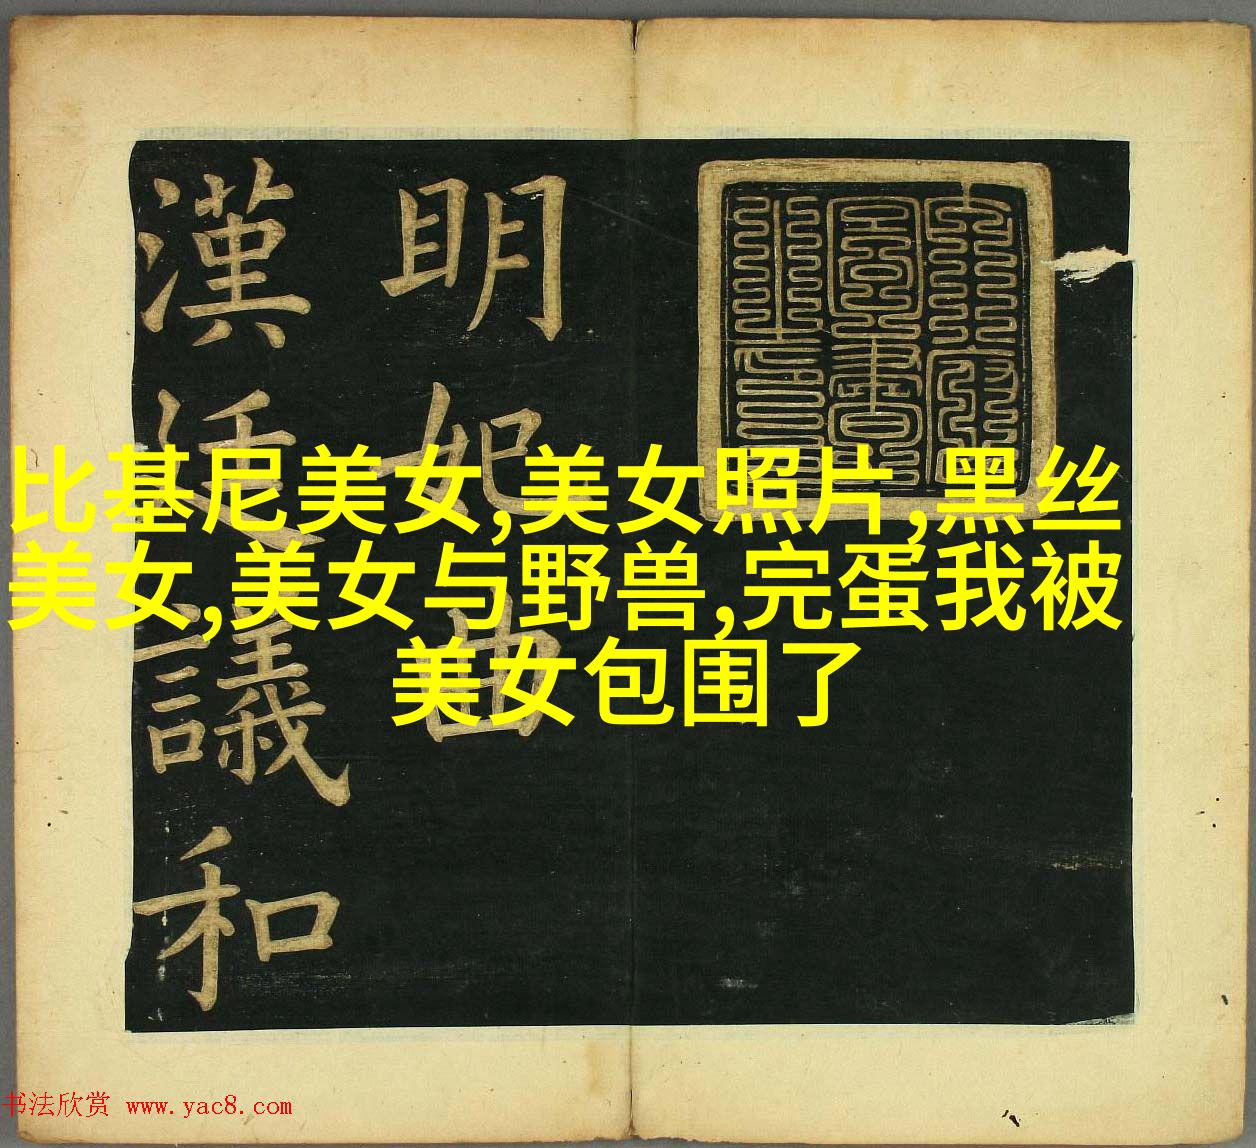 明妃曲
漢廷議和
比基尼美女,美女照片,黑丝
美女,美女与野兽,完蛋我被
美女包围了
书法欣赏 www.yac8.com